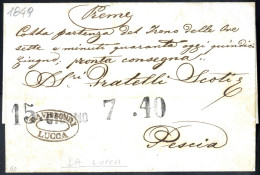 1849
Preme
Colla partenza del Treno delle Ore
sette e minuti quaranta oggi quindici
Giugno, pronta consegna
Sri. Fratelli Scoti
15 GIUGNO 7 .40
LUCCA
Pescia
DA LUCCA